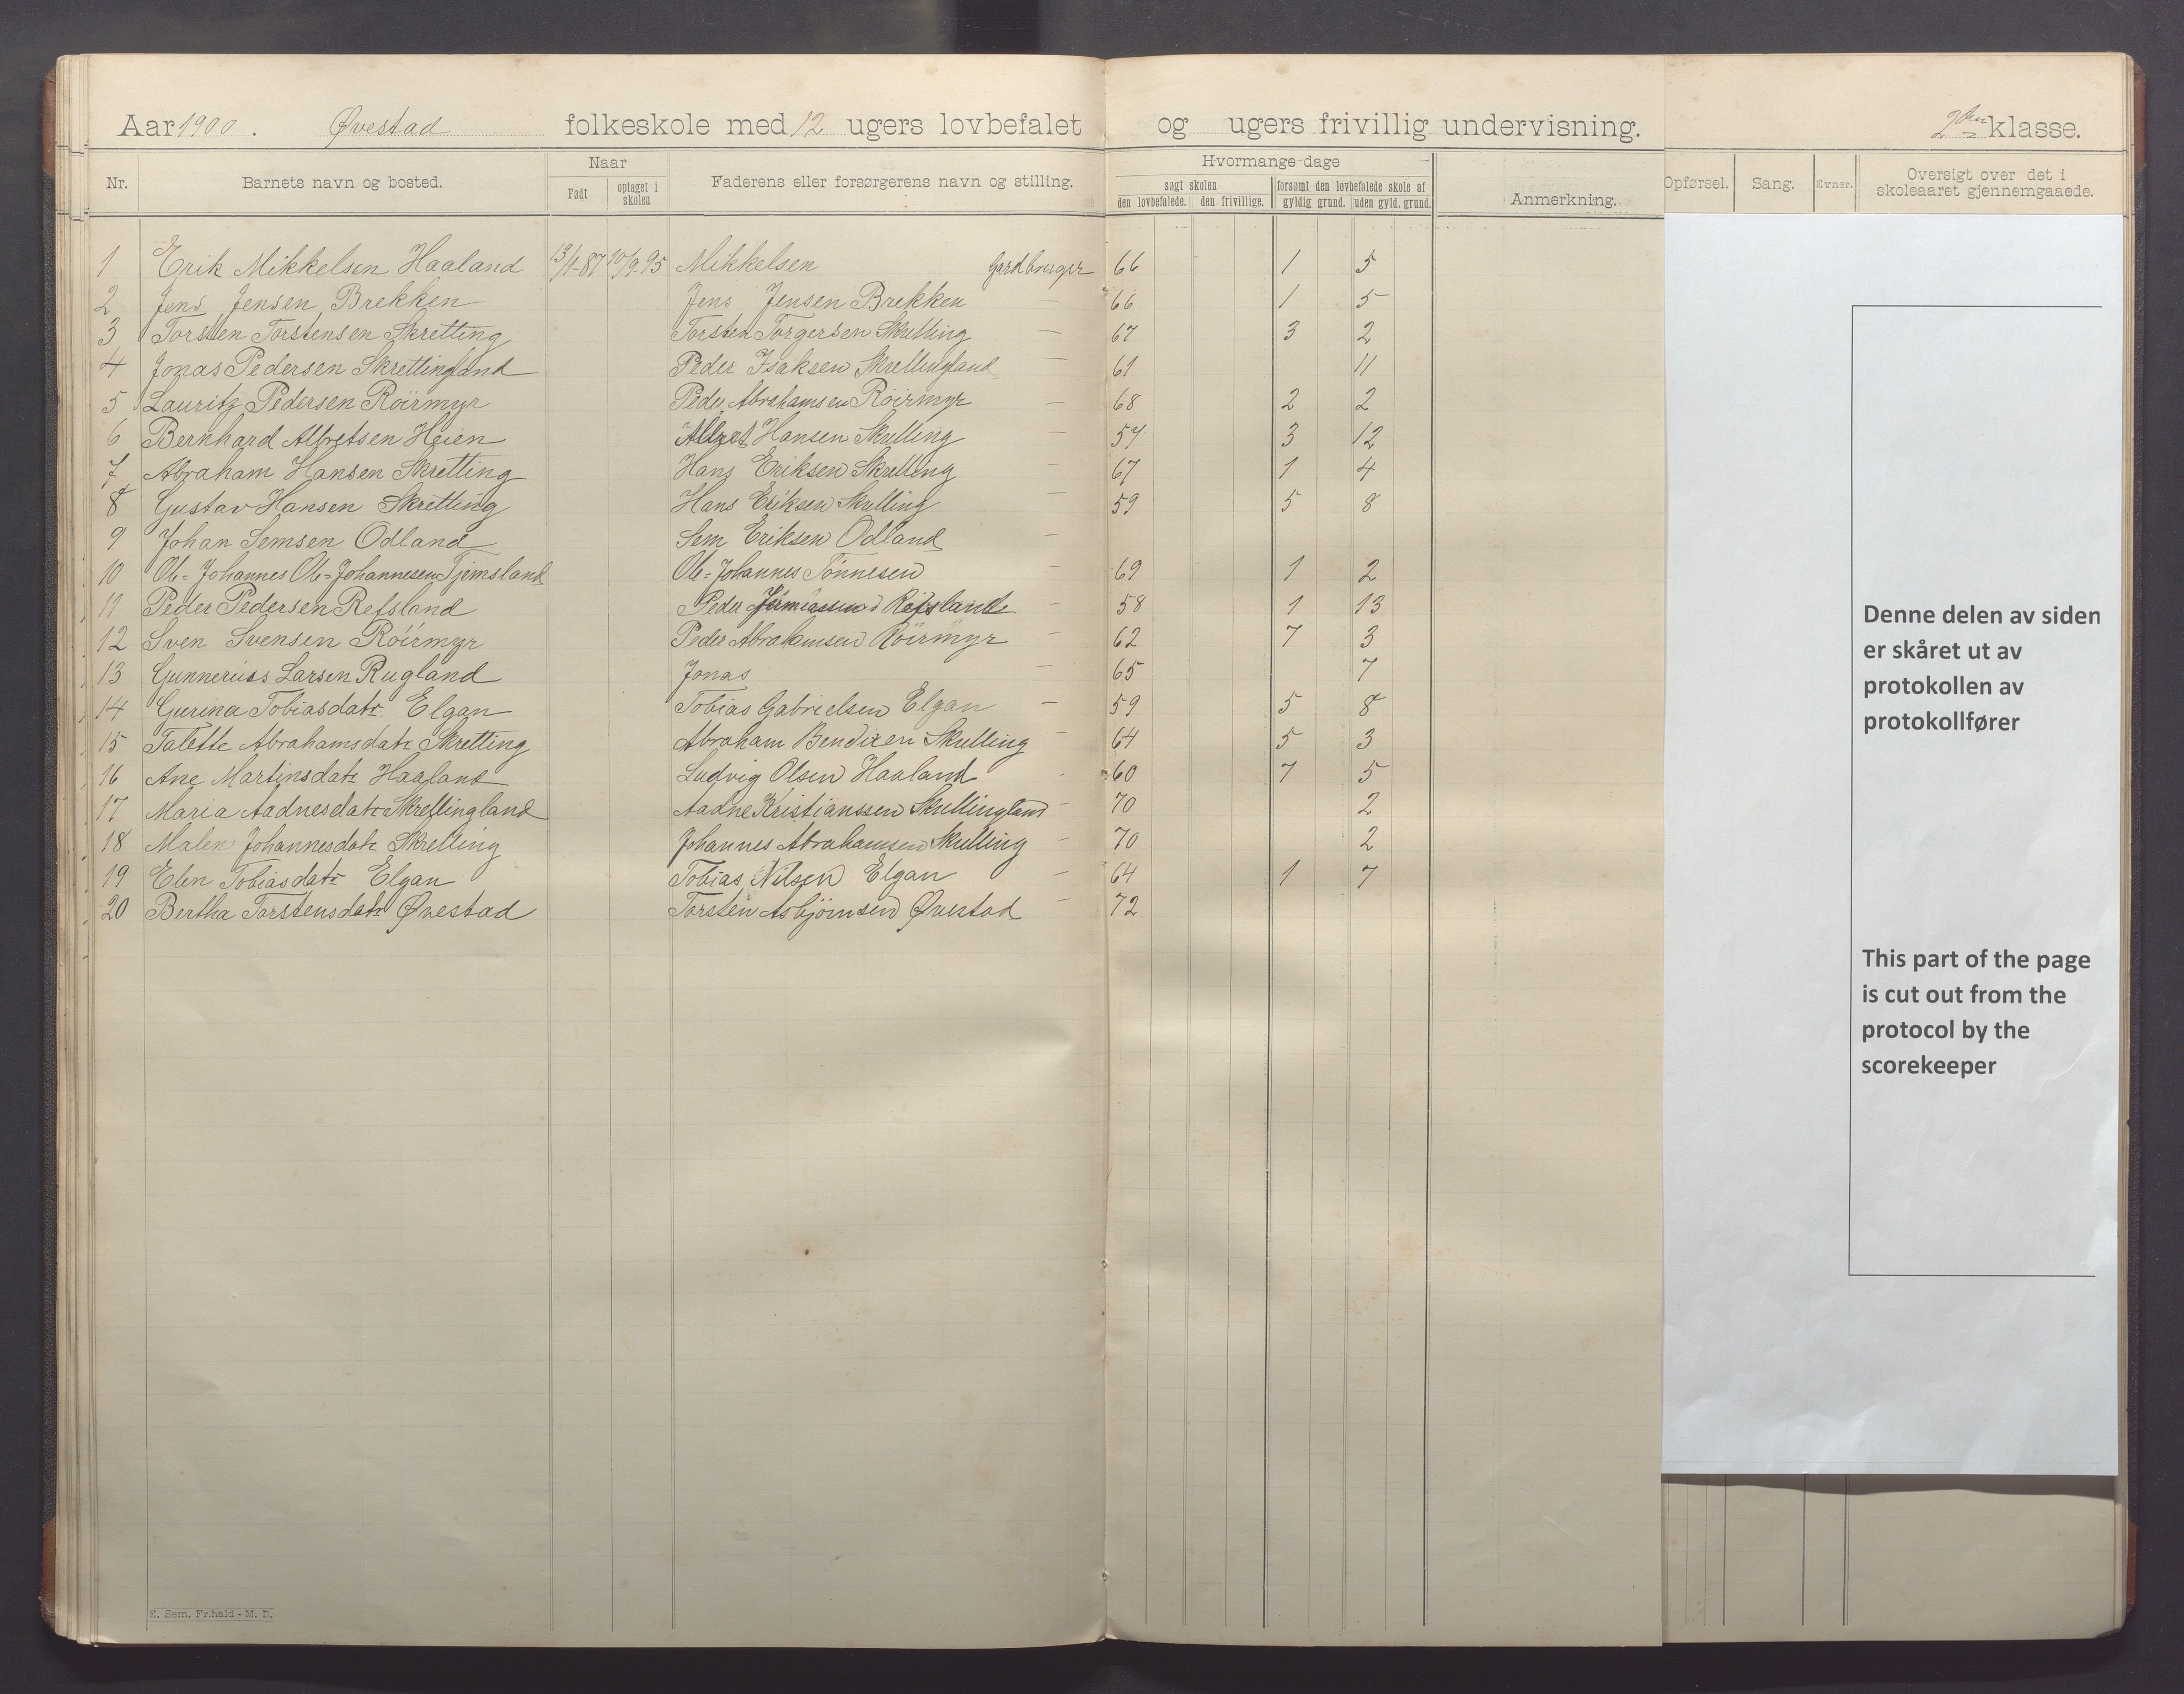 Aar 1900. Øvestad folkeskole med 12 ugers lovbefalet og ugers frivillig undervisning. 2den klasse.
Nr. Barnets navn og bosted. Naar Født optaget i skolen Faderens eller forsørgerens navn og stilling. Hvormange dage søgt skolen den lovbefalede. den frivillige. forsømt den lovbefalede skole af gyldig grund. uden gyld. grund. Anmerkning. Opførsel. Sang. Evner. Oversigt over det i skoleaaret gjennemgaaede.
1 Erik Mikkelsen Haaland 13/1-87 10/9.95 Mikkelsen Gardbruger 66 1 5
2 Jens Jensen Brekken Jens Jensen Brekken 66 1 5
3 Torsten Torstensen Skretting Torsten Torgersen Skretting — 67 3 2
4 Jonas Pedersen Skrettingland Peder Isaksen Skrettingland — 61 11
5 Lauritz Pedersen Röirmyr Peder Abrahamsen Röirmyr — 68 2 2
6 Bernhard Albretsen Heien Albret Hansen Skretting — 57 3 12
7 Abraham Hansen Skretting Hans Eriksen Skretting — 67 1 4
8 Gustav Hansen Skretting Hans Eriksen Skretting — 59 5 8
9 Johan Semsen Odland Sem Eriksen Odland —
10 Ole-Johannes Ole-Johannesen Tjemsland Ole-Johannes Tönnesen — 69 1 2
11 Peder Pedersen Refsland Peder Refsland — 58 1 13
12 Sven Svensen Röirmyr Peder Abrahamsen Röirmyr — 62 7 3
13 Gunnerius Larsen Rugland Jonas — 65 7
14 Gurina Tobiasdatr Elgan Tobias Gabrielsen Elgan — 59 5 8
15 Talette Abrahamsdatr Skretting Abraham Bendixen Skretting — 64 5 3
16 Ane Martinsdatr Haaland Ludvig Olsen Haaland - 60 7 5
17 Maria Aadnesdatr Skrettingland Aadne Kristianssen Skrettingland — 70 2
18 Malen Johannesdatr Skretting Johannes Abrahamsen Skretting — 70 2
19 Elen Tobiasdatr Elgan Tobias Nilsen Elgan — 64 1 7
20 Bertha Torstensdatr Øvestad Torsten Asbjörnsen Øvestad — 72
Denne delen av siden
er skåret ut av
protokollen av
protokollfører
This part of the page
is cut out from the
protocol by the
scorekeeper
E. Sem, Fr.hald - M. D.